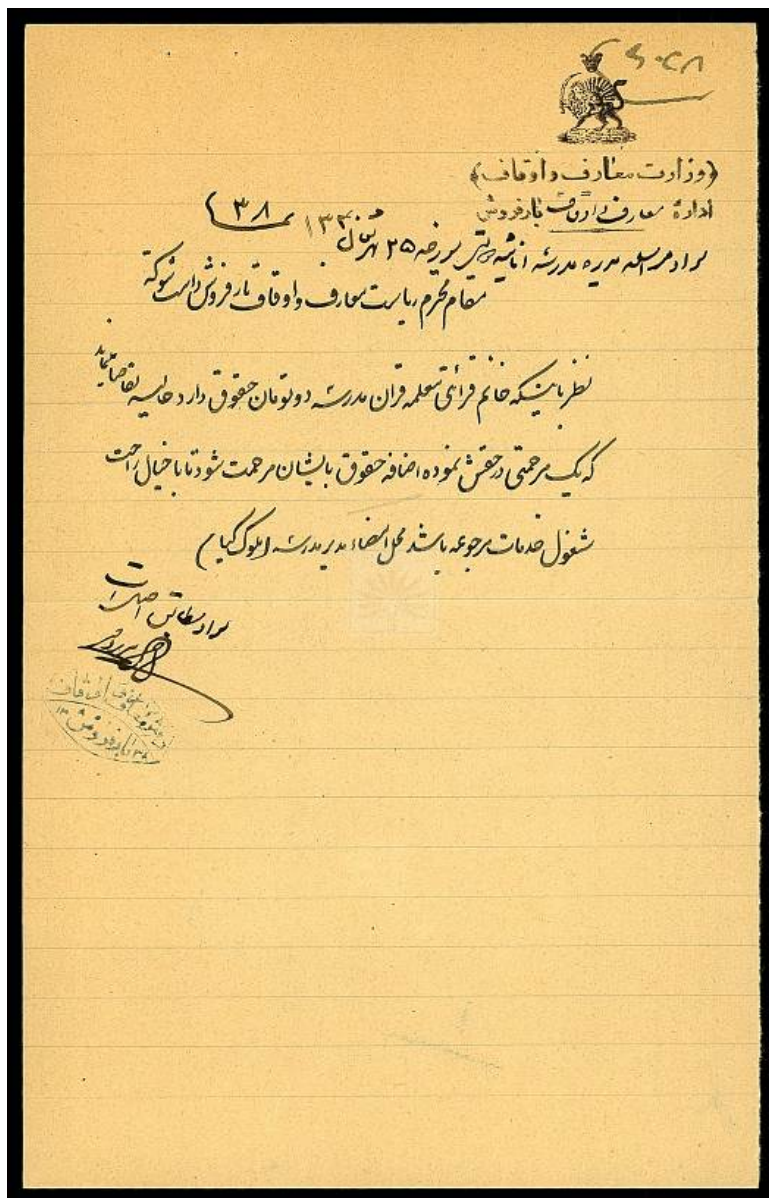 ۹۰۲۸
﴿وزارت معارف و اوقاف﴾
ادارهٔ معارف و اوقاف بارفروش
سواد مراسله مدیره مدرسه اناثیه مورخه ۲۵ ۱۳۳۰ ۳۸
مقام محترم ریاست معارف و اوقاف بارفروش دامت شوکته
نظر باینکه خانم قرائتی معلمه قرآن مدرسه دو تومان حقوق دارد حالیه تقاضا مینماید
که یک مرحمتی در حقش نموده اضافه حقوق بایشان مرحمت شود تا با خیال راحت
مشغول خدمات مرجوعه باشد محل امضاء مدیر مدرسه (ملوک کیا)
سواد مطابق اصل است